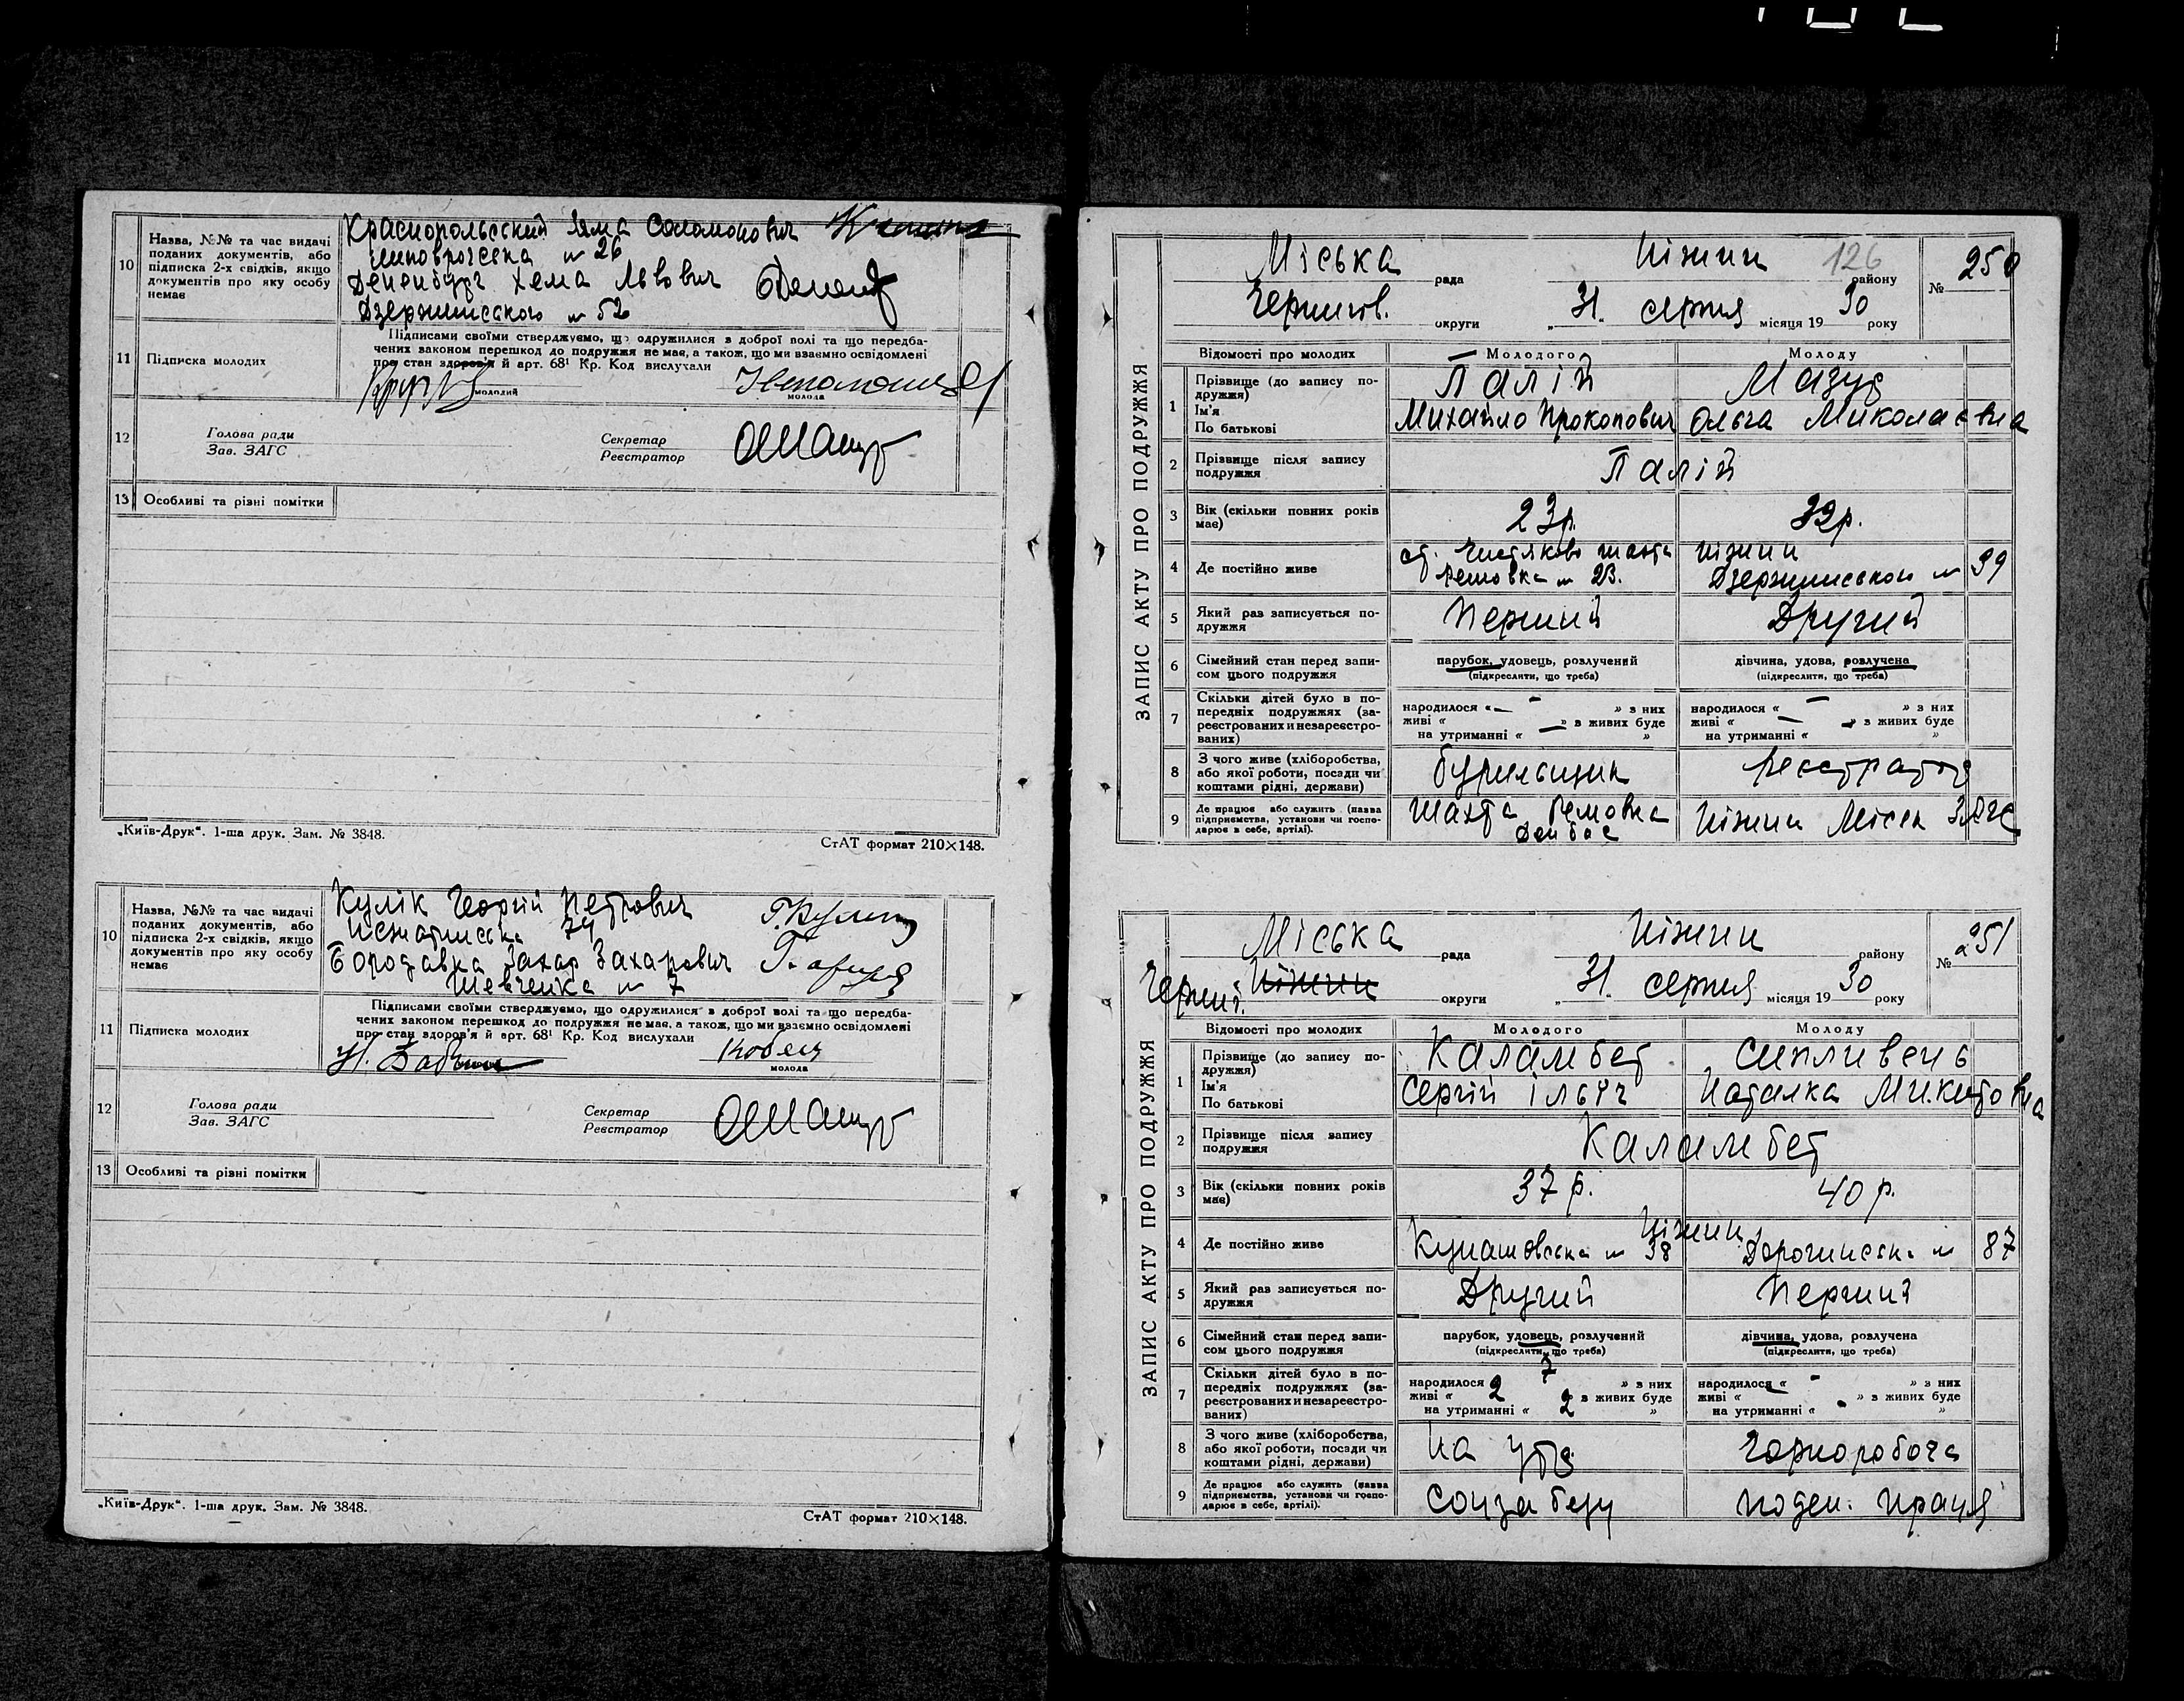 10
Назва, №№ та час видачі
поданих документів, або
підписка 2-х свідків, якщо
документів про яку особу
немає
Краснопольський Зяма Соломонович
№ 26
Хема Львович
Дзержинського № 52
11 Підписка молодих
Підписами своїми стверджуємо, що одружилися з доброї волі та що передба-
чених законом перешкод до подружжя не має, а також, що ми взаємно освідомлені
про стан здоров'я й арт. 68¹ Кр. Код вислухали
молодий
молода
12
Голова ради
Зав. ЗАГС
Секретар
Реєстратор
13 Особливі та різні помітки
„Київ-Друк“. 1-ша друк. Зам. № 3848.
СтАТ формат 210×148.
10
Назва, №№ та час видачі
поданих документів, або
підписка 2-х свідків, якщо
документів про яку особу
немає
Кулік Георгій Петрович Г. Кулик
74
Бородавка Захар Захарович
Шевченка № 7
11 Підписка молодих
Підписами своїми стверджуємо, що одружилися з доброї волі та що передба-
чених законом перешкод до подружжя не має, а також, що ми взаємно освідомлені
про стан здоров'я й арт. 68¹ Кр. Код вислухали
молода
12
Голова ради
Зав. ЗАГС
Секретар
Реєстратор
13 Особливі та різні помітки
„Київ-Друк“. 1-ша друк. Зам. № 3848.
СтАТ формат 210×148.
ЗАПИС АКТУ ПРО ПОДРУЖЖЯ
Міська рада Ніжин району 126 № 250
Чернигов. округи „31. серпня місяця 1930 року
Відомості про молодих Молодого Молоду
1 Прізвище (до запису по-
дружжя)
Ім'я
По батькові
Палій Мазур
Михайло Прокопович Ольга Миколаєвна
2 Прізвище після запису
подружжя
Палій
3 Вік (скільки повних років
має)
23р. 32р.
4 Де постійно живе
ст. Чистяково шахта Ніжин
Ремовка № 2В. Дзержинського № 39
5 Який раз записується по-
дружжя
Перший Другий
6 Сімейний стан перед запи-
сом цього подружжя
парубок, удовець, розлучений дівчина, удова, розлучена
(підкреслити, що треба) (підкреслити, що треба)
7 Скільки дітей було в по-
передніх подружжях (за-
реєстрованих и незареєстро-
ваних)
народилося «—» з них народилося «—» з них
живі «—» з живих буде живі «—» з живих буде
на утриманні «—» на утриманні « »
8 З чого живе (хліборобства,
або якої роботи, посади чи
коштами рідні, держави)
бурильщик Реєстратор
9 Де працює або служить (назва
підприємства, установи чи госпо-
дарює в себе, артілі).
Шахта Ремовка Ніжин Міськ ЗАГС
Донбас
ЗАПИС АКТУ ПРО ПОДРУЖЖЯ
Міська рада Ніжин району № 251
Черниг. Ніжин округи „31. серпня місяця 1930 року
Відомості про молодих Молодого Молоду
1 Прізвище (до запису по-
дружжя)
Ім'я
По батькові
Каламбет Сипливець
Сергій Ілліч Наталка Микитовна
2 Прізвище після запису
подружжя
Каламбет
3 Вік (скільки повних років
має)
37 р. 40 р.
4 Де постійно живе
Ніжин
Кунашовська № 38 № 87
5 Який раз записується по-
дружжя
Другий Перший
6 Сімейний стан перед запи-
сом цього подружжя
парубок, удовець, розлучений дівчина, удова, розлучена
(підкреслити, що треба) (підкреслити, що треба)
7 Скільки дітей було в по-
передніх подружжях (за-
реєстрованих и незареєстро-
ваних)
народилося 7 » з них народилося « - » з них
живі « 2 з живих буде живі « » з живих буде
на утриманні « 2 » на утриманні « »
8 З чого живе (хліборобства,
або якої роботи, посади чи
коштами рідні, держави)
на утр. Чорноробоча
9 Де працює або служить (назва
підприємства, установи чи госпо-
дарює в себе, артілі).
Соцзабезу поден. праця